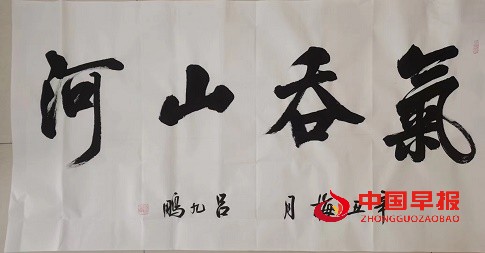 氣吞山河
辛丑梅月 吕九鵬
中国早报
ZHONGGUOZAOBAO